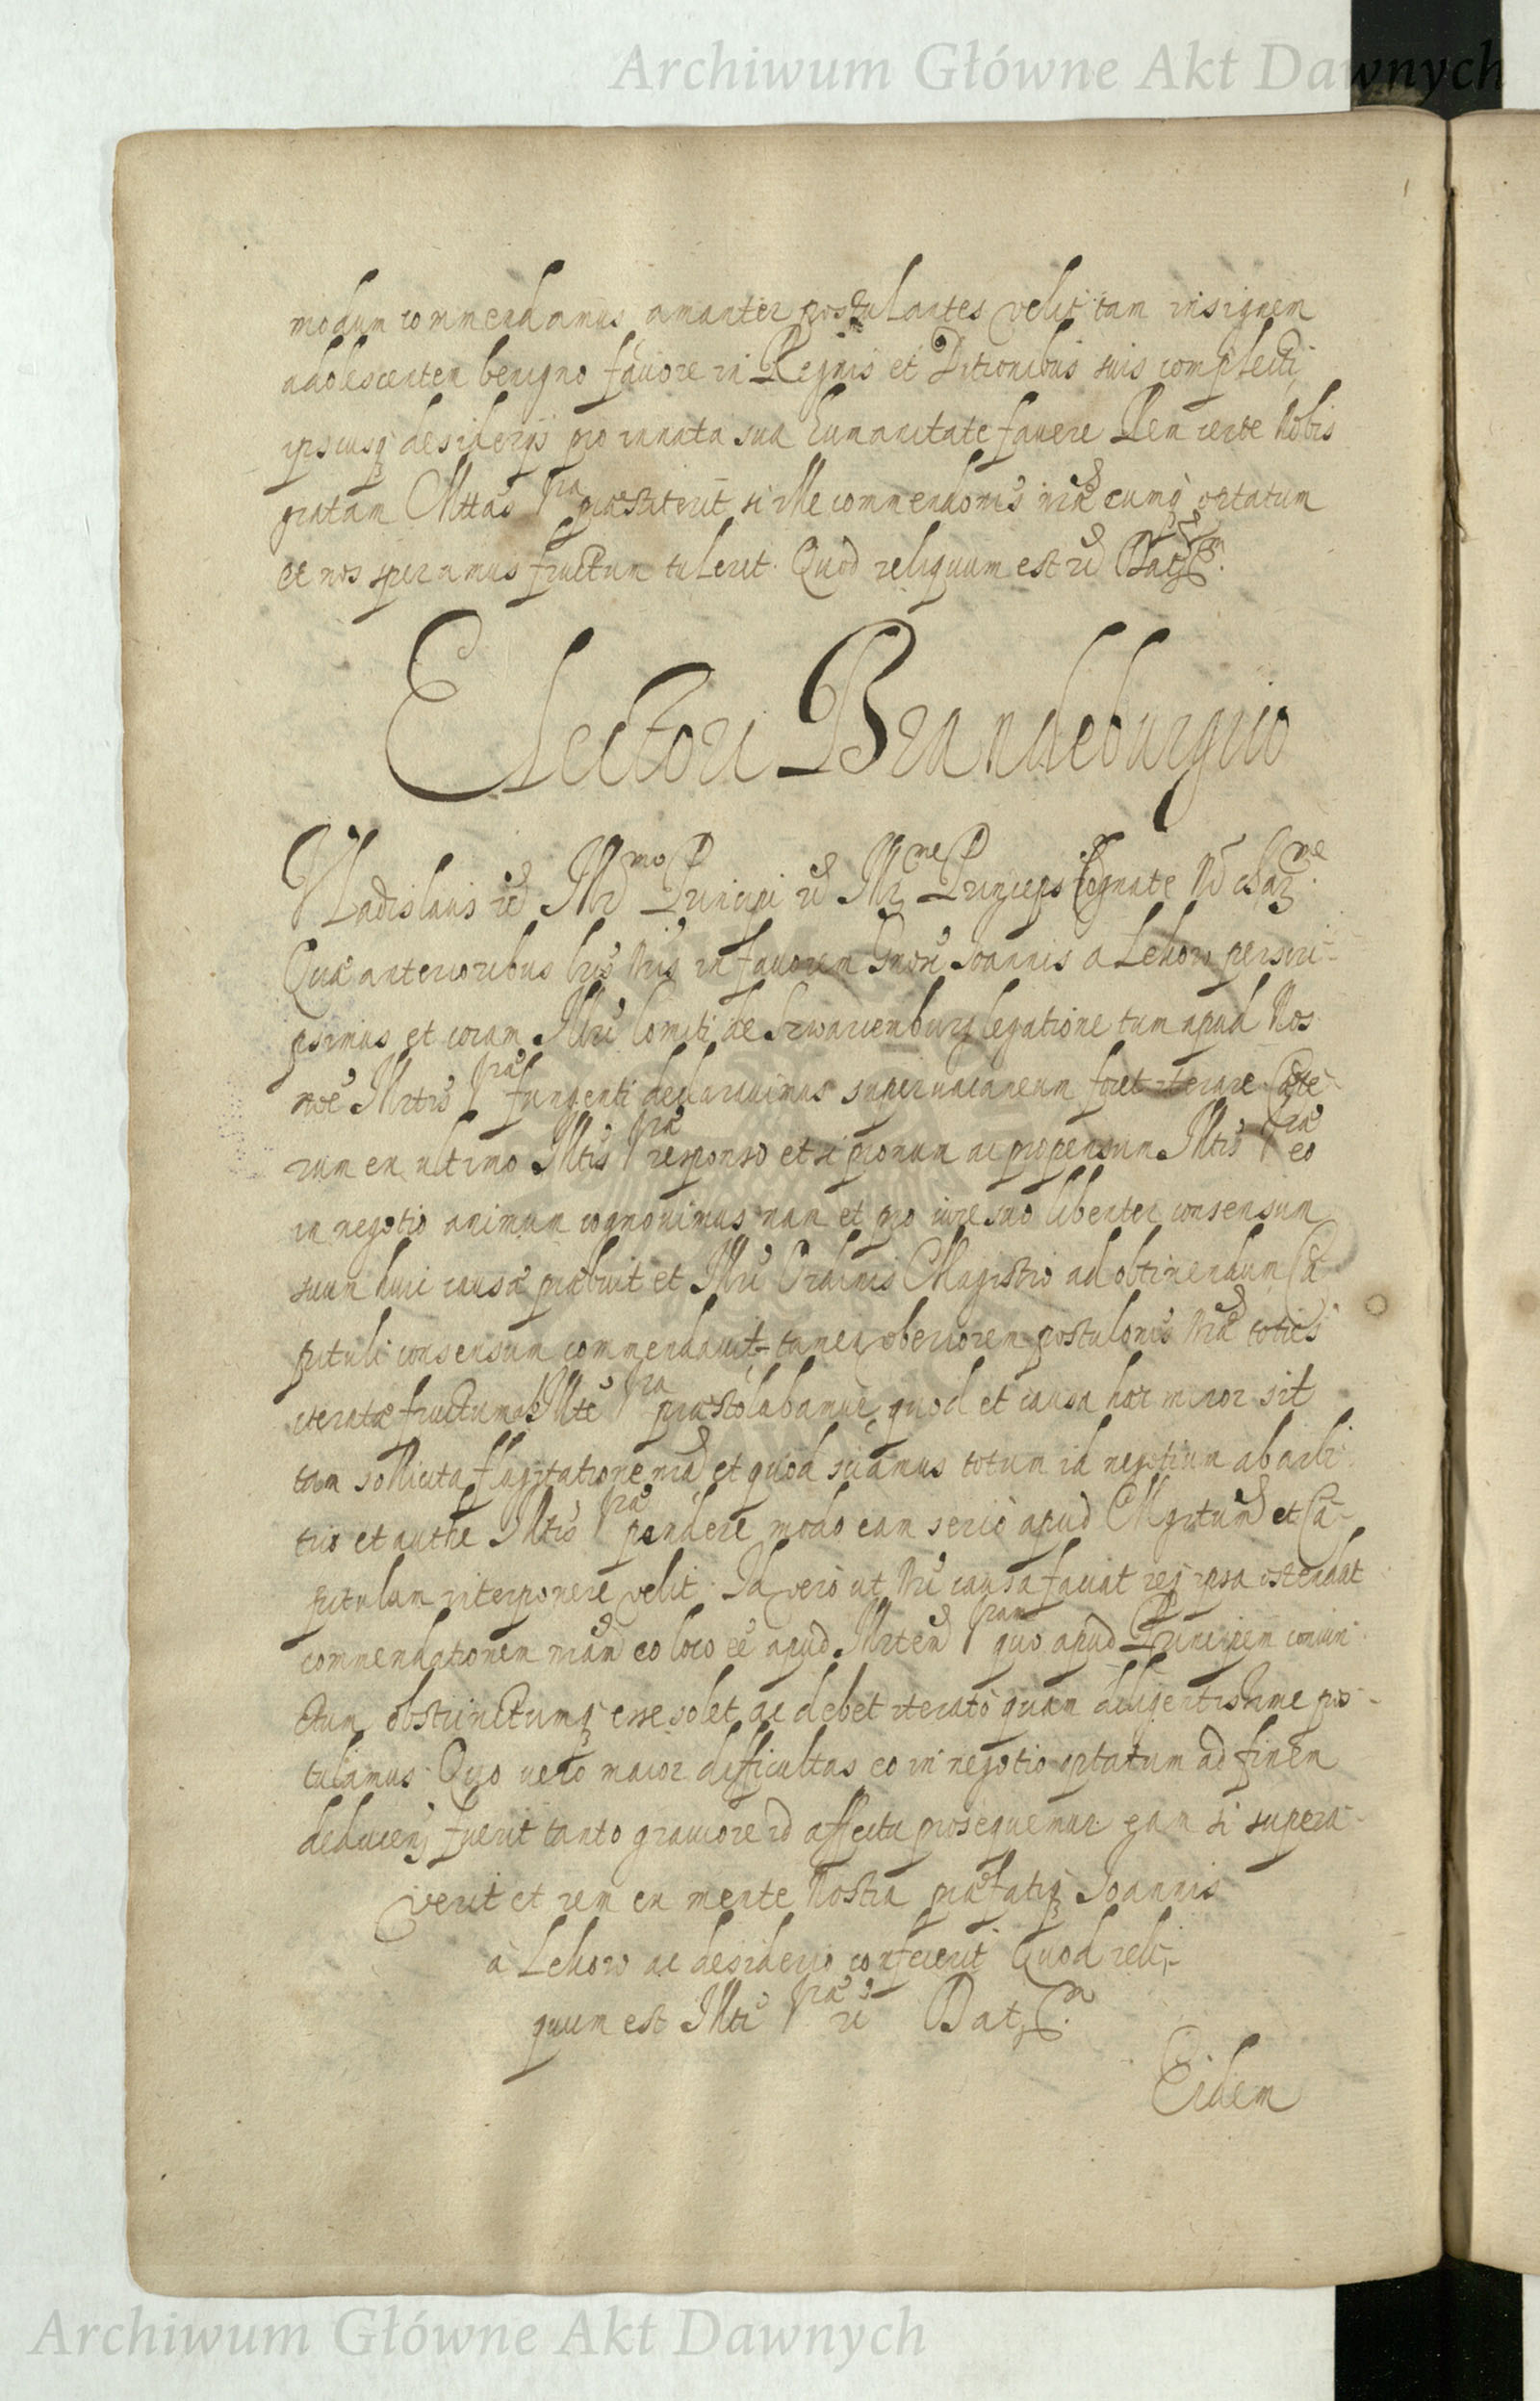 Archiwum Główne Akt Dawnych
modum commendamus amanter postulantes velit tam insignem
adolescentem benigno favore in Regnis et Ditionibus suis complecti
ipsiusq desiderijs pro innata sua humanitate favere Rem certe Nobis
gratam Mttas Vra præstiterit si illæ commendonis nræ eumq optatum
et nos speramus fructum tulerit. Quod reliquum est
Electori Brandeburgico
Vladislaus Illmo Principi Illme Princeps Cognate
Quæ anterioribus lris Nris in favorem Gnosi Joannis a Lehow perscri-
psimus et coram Illri Comiti de Szwarcenburg legatione tum apud Nos
Illrtis Vræ fungenti declaravimus supervacaneum foret iterare Cæte-
rum ex ultimo Illtis Vræ responso etsi pronum ac propensum Illtis Vræ eo
in negotio animum cognovimus nam et pro iure suo libenter consensum
suum huic causæ præbuit et Illri Ordinis Magistro ad obtinendum Ca
pituli consensum commendavit tamen uberiorem postulonis Nræ toties
iteratæ fructum ab Illte Vra præstolabamur, quod et causa hæc minor sit
tam sollicita flagitatione nra et quod sciamus totum id negotium ab arbi-
trio et authe Illtis Vræ pendere modo eam serio apud Mgrtum et Ca-
pitulum interponere velit. Id vero ut Nri causa faciat req ipsa ostendat
commendationem nram eo loco ee apud Illrtem Vram quo apud Principem coniun
ctum obstrictumq esse solet ac debet iterato quam diligentissime pos-
tulamus. Quo vero maior difficultas eo in negotio optatum ad finem
deducen fuerit tanto graviore id affectu prosequemur eam si supera-
verit et rem ex mente Nostra præfatiq Joannis
à Lehow ac desiderio confecerit Quod reli-
quum est Illti Vræ Dat
Eidem
Archiwum Główne Akt Dawnych